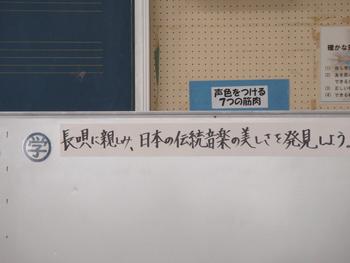 確かな
(1)
(2)
(3) 正しい
(4)
声色をつける
7つの筋肉
学
長唄に親しみ、日本の伝統音楽の美しさを発見しよう。